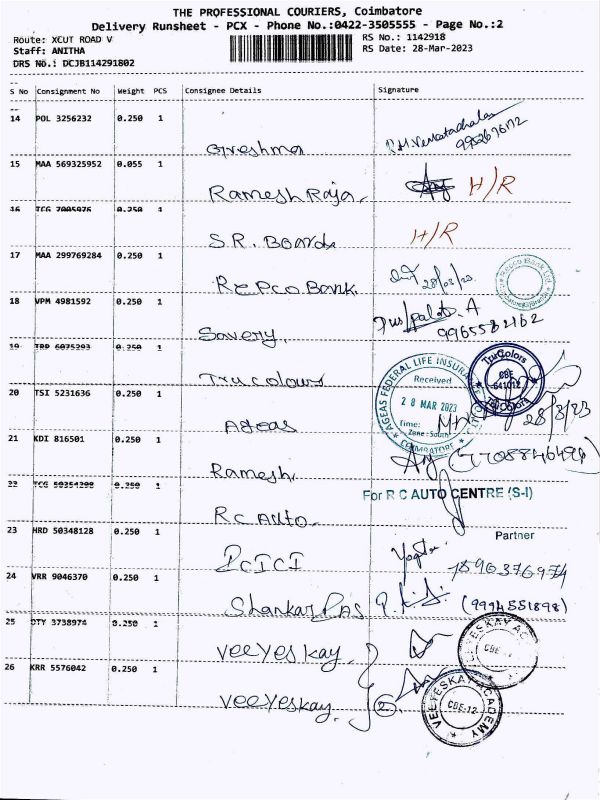 THE PROFESSIONAL COURIERS, Coimbatore
Delivery Runsheet - PCX - Phone No.:0422-3505555 - Page No.:2
Route: XCUT ROAD V
RS No.: 1142918
Staff: ANITHA
RS Date: 28-Mar-2023
DRS No.: DCJB114291802
S No Consignment No Weight PCS Consignee Details Signature
14 POL 3256232 0.250 1
Greshma
15 MAA 569325952 0.055 1
Ramesh Raja. H/R
16 TCG 7005076 0.250 1
S.R. Boards H/R
17 MAA 299769284 0.250 1
Repco Bank. 28/03/23
18 VPM 4981592 0.250 1
Sovery. 9965582162
19 TRP 6075293 0.250 1
Trucolours
TruColors
CBE
641012
20 TSI 5231636 0.250 1
Ageas 28/3/23
AGEAS FEDERAL LIFE INSURA
Received
28 MAR 2023
Time:
Zone: South
COIMBATORE
21 KDI 816501 0.250 1
Ramesh (7708846494)
22 TCG 50354298 0.250 1
RC Auto
For R C AUTO CENTRE (S-I)
Partner
23 HRD 50348128 0.250 1
ICICI
24 VRR 9046370 0.250 1
Shankar Das (9994551898)
25 DTY 3738974 0.250 1
Veeyeskay
26 KRR 5576042 0.250 1
Veeyeskay. 2
VEEYESKAY ACADEMY
CBE-12